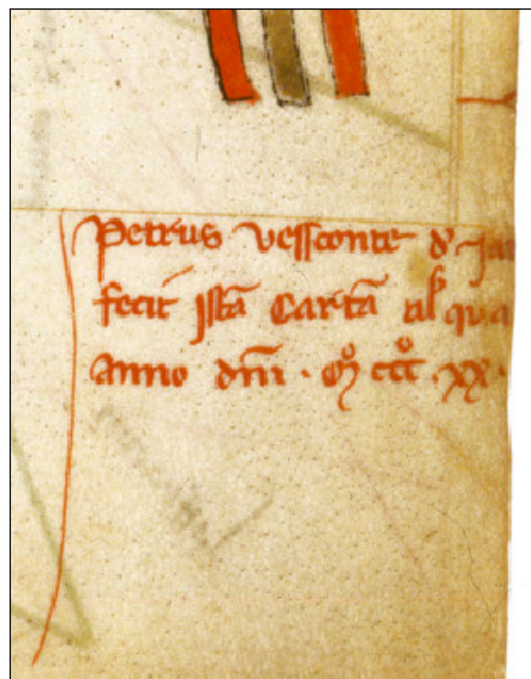 Petrus vessconte d' Ja
fecit Istā cartā
Anno dñi · Mº cccº · xx ·